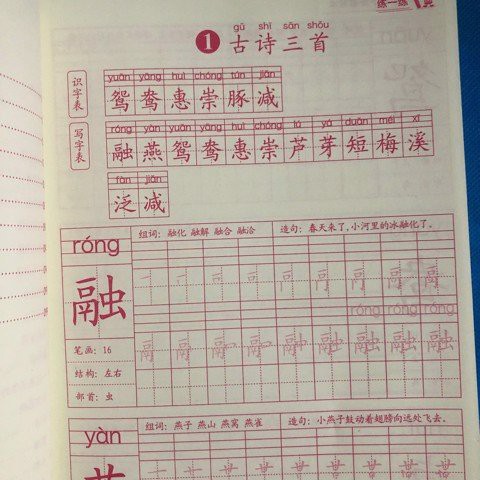 练一练
gǔ shī sān shǒu
1 古诗三首
识字表
yuān yāng huì chóng tún jiǎn
鸳 鸯 惠 崇 豚 减
写字表
róng yàn yuān yāng huì chóng lú yá duǎn méi xī
融 燕 鸳 鸯 惠 崇 芦 芽 短 梅 溪
fàn jiǎn
泛 减
róng
组词：融化 融解 融合 融洽 造句：春天来了，小河里的冰融化了。
融
róng róng róng
笔画：16
结构：左右
部首：虫
yàn
组词：燕子 燕山 燕窝 燕雀 造句：小燕子鼓动着翅膀向远处飞去。